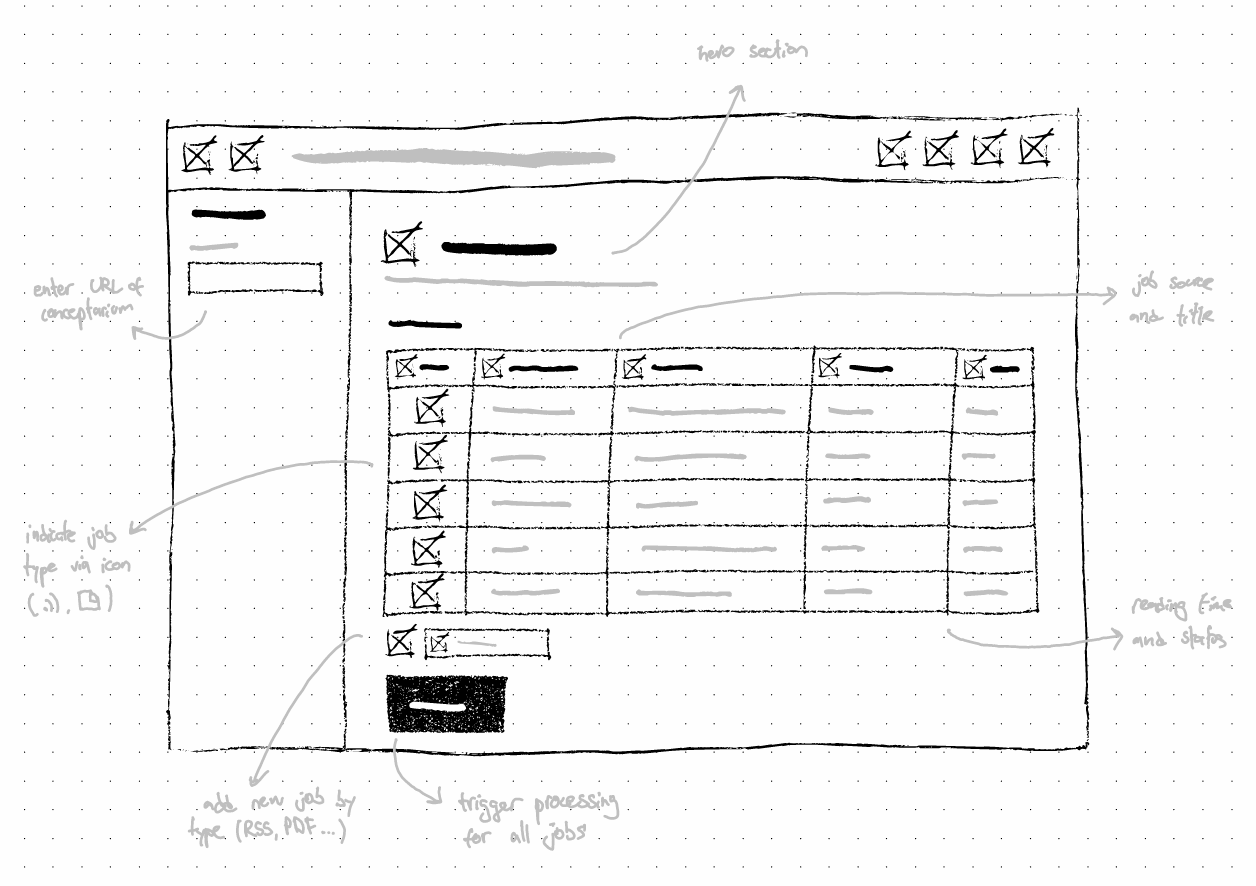 hero section
enter URL of
conceptarium
job source
and title
indicate job
type via icon
reading time
and status
add new job by
type (RSS, PDF...)
trigger processing
for all jobs